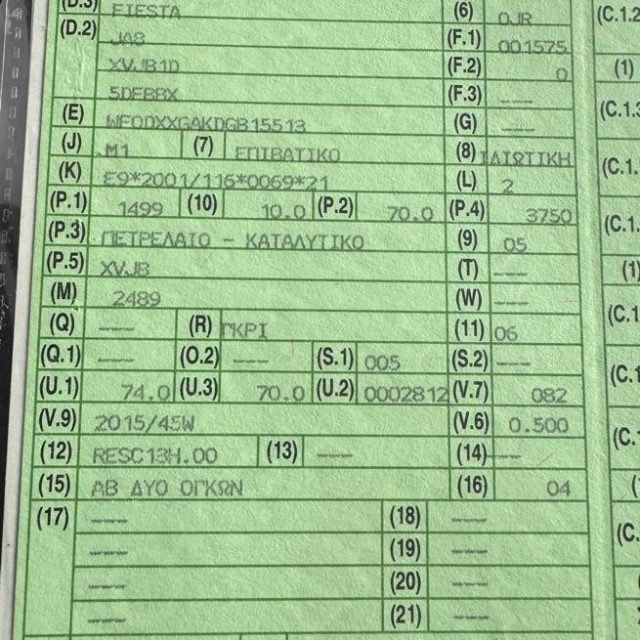 (D.3) FIESTA (6) OJR (C.1.2
(D.2) JA8 (F.1) 001575
XVJB1D (F.2) 0 (1)
5DEBBX (F.3) ---
(E) WF0DXXGAKDGB15513 (G) --- (C.1.3
(J) M1 (7) ΕΠΙΒΑΤΙΚΟ (8) ΙΔΙΩΤΙΚΗ
(K) E9*2001/116*0069*21 (L) 2 (C.1.
(P.1) 1499 (10) 10.0 (P.2) 70.0 (P.4) 3750
(P.3) ΠΕΤΡΕΛΑΙΟ - ΚΑΤΑΛΥΤΙΚΟ (9) 05 (C.1.
(P.5) XVJB (T) --- (1)
(M) 2489 (W) ---
(Q) --- (R) ΓΚΡΙ (11) 06 (C.1
(Q.1) --- (O.2) --- (S.1) 005 (S.2) ---
(U.1) 74.0 (U.3) 70.0 (U.2) 0002812 (V.7) 082 (C.1
(V.9) 2015/45W (V.6) 0.500
(12) RESC13H.00 (13) --- (14) --- (C.
(15) ΑΒ ΔΥΟ ΟΓΚΩΝ (16) 04 (1
(17) --- (18) --- (C.
--- (19) ---
--- (20) ---
--- (21) --- (C.